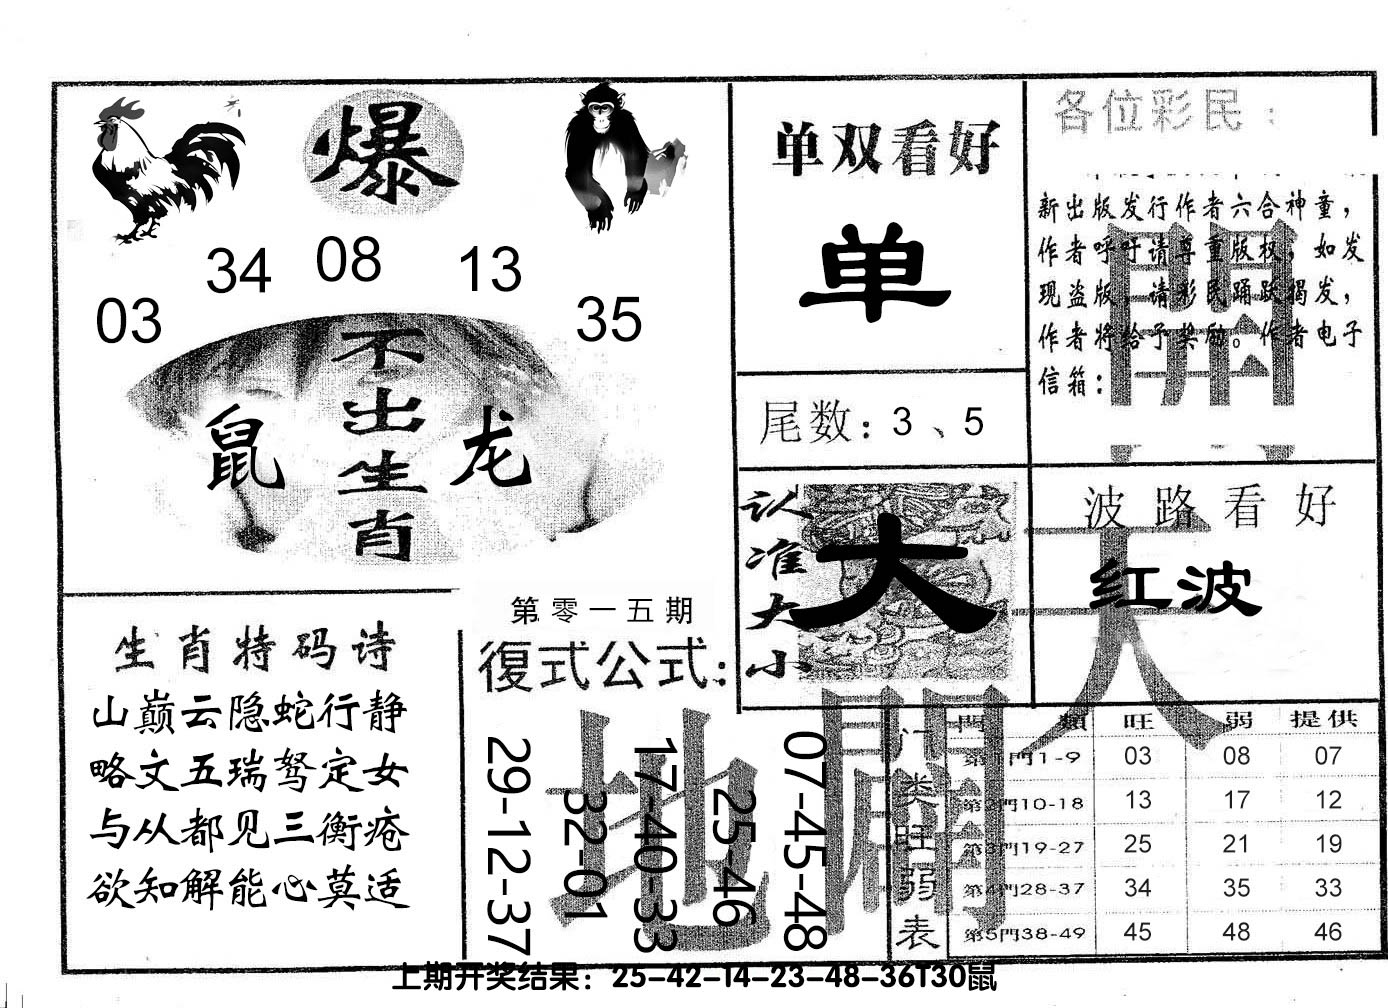 爆
34 08 13
03 35
不出生肖
鼠 龙
单双看好
单
尾数：3、5
各位彩民：
新出版发行作者六合神童，
作者呼吁请尊重版权，如发
现盗版，请彩民踊跃揭发，
作者将给予奖励。作者电子
信箱：
認准大小
大
波路看好
红波
天
地
開
開
生肖特码诗
山巅云隐蛇行静
略文五瑞驽定女
与从都见三衡疮
欲知解能心莫适
第零一五期
復式公式：
29-12-37
32-01
17-40-33
25-46
07-45-48
门类旺弱表
門類 旺 弱 提供
第1門1-9 03 08 07
第2門10-18 13 17 12
第3門19-27 25 21 19
第4門28-37 34 35 33
第5門38-49 45 48 46
上期开奖结果：25-42-14-23-48-36T30鼠